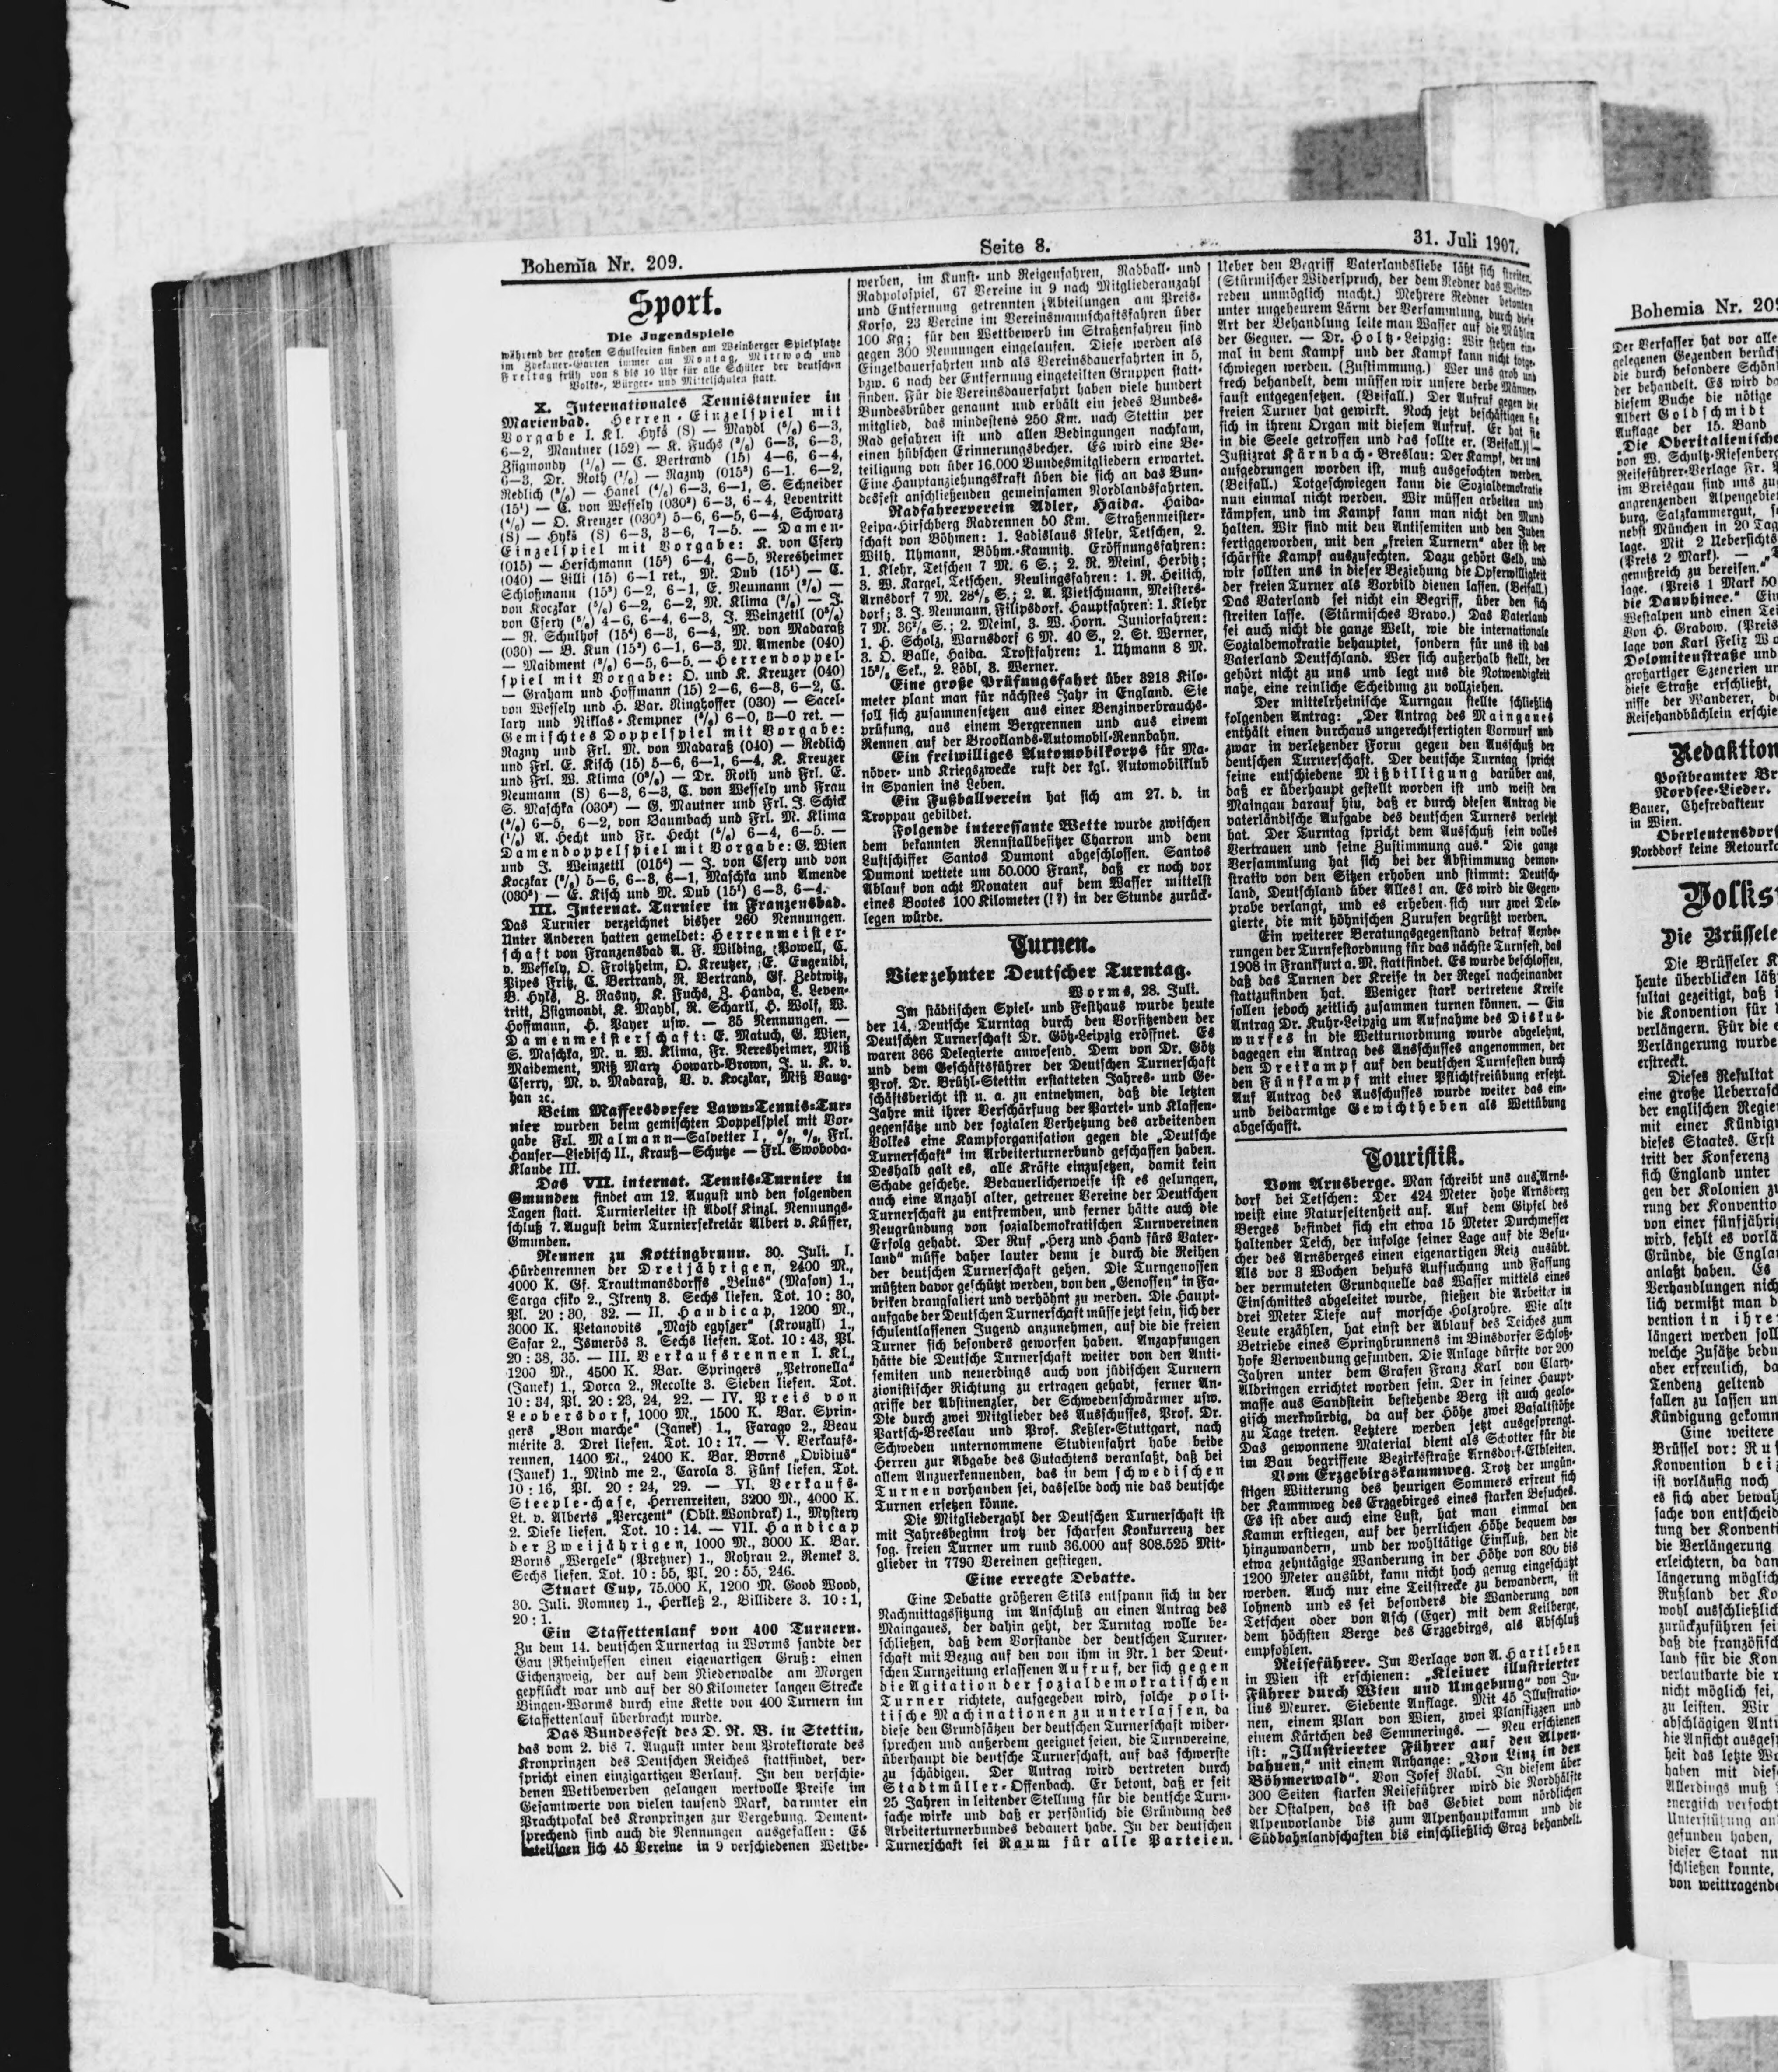 Bohemia Nr. 209.
Seite 8.
31. Juli 1907.
Sport.
Die Jugendspiele
während der großen Schulferien finden am Weinberger Spielplatze
im Zvekauer-Garten immer am Montag, Mittwoch und
Freitag früh von 8 bis 10 Uhr für alle Schüler der deutschen
Volks-, Bürger- und Mittelschulen statt.
X. Internationales Tennisturnier in
Marienbad. Herren-Einzelspiel mit
Vorgabe I. Kl. Hyks (S) — Maydl 6—3,
6—2, Mautner (152) — K. Fuchs 6—3, 6—3,
Zsigmondy — C. Bertrand (15) 4—6, 6—4,
6—3, Dr. Roth — Razny 6—1, 6—2,
Redlich — Hanel 6—3, 6—1, S. Schneider
— C. von Wessely 6—3, 6—4, Leventritt
— O. Kreuzer 5—6, 6—5, 6—4, Schwarz
(S) — Hyks (S) 6—3, 3—6, 7—5. — Damen-
Einzelspiel mit Vorgabe: K. von Csery
(015) — Herschmann 6—4, 6—5, Neresheimer
(040) — Lilli (15) 6—1 ret., M. Dub — C.
Schloßmann 6—2, 6—1, E. Neumann —
von Koczkar 6—2, 6—2, M. Klima — J.
von Csery 4—6, 6—4, 6—3, J. Weinzettl
— R. Schulhof 6—3, 6—4, M. von Madaraß
(030) — B. Kun 6—1, 6—3, M. Amende (040)
— Maidment 6—5, 6—5. — Herrendoppel-
spiel mit Vorgabe: O. und K. Kreuzer (040)
— Graham und Hoffmann (15) 2—6, 6—3, 6—2, C.
von Wessely und H. Bar. Ringhoffer (030) — Sacel-
lary und Niklas-Kempner 6—0, 3—0 ret. —
Gemischtes Doppelspiel mit Vorgabe:
Razny und Frl. M. von Madaraß (040) — Redlich
und Frl. E. Kisch (15) 5—6, 6—1, 6—4, K. Kreuzer
und Frl. W. Klima — Dr. Roth und Frl. E.
Neumann (S) 6—3, 6—3, C. von Wessely und Frau
S. Maschka — G. Mautner und Frl. J. Schick
6—5, 6—2, von Baumbach und Frl. M. Klima
A. Hecht und Fr. Hecht 6—4, 6—5. —
Damendoppelspiel mit Vorgabe: G. Wien
und J. Weinzettl — J. von Csery und von
Koczkar 5—6, 6—3, 6—1, Maschka und Amende
— E. Kisch und M. Dub 6—3, 6—4.
III. Internat. Turnier in Franzensbad.
Das Turnier verzeichnet bisher 260 Nennungen.
Unter Anderen hatten gemeldet: Herrenmeister-
schaft von Franzensbad A. F. Wilding, Powell, C.
v. Wessely, O. Froitzheim, O. Kreutzer, E. Eugenidi,
Pipes Fritz, C. Bertrand, R. Bertrand, Gf. Zedtwitz,
B. Hyks, Z. Rasny, K. Fuchs, Z. Handa, L. Leven-
tritt, Zsigmondi, K. Maydl, R. Schartl, H. Wolf, W.
Hoffmann, H. Payer usw. — 35 Nennungen. —
Damenmeisterschaft: E. Matuch, G. Wien,
S. Maschka, M. u. W. Klima, Fr. Neresheimer, Miß
Maidement, Miß Mary Howard-Brown, J. u. K. v.
Cserry, M. v. Madaraß, B. v. Koczkar, Miß Baug-
han ꝛc.
Beim Maffersdorfer Lawn-Tennis-Tur-
nier wurden beim gemischten Doppelspiel mit Vor-
gabe Frl. Malmann—Salvetter I, Frl.
Hauser—Liebisch II., Krauß—Schutze — Frl. Swoboda-
Klaude III.
Das VII. internat. Tennis-Turnier in
Gmunden findet am 12. August und den folgenden
Tagen statt. Turnierleiter ist Adolf Kinzl. Nennungs-
schluß 7. August beim Turniersekretär Albert v. Küffer,
Gmunden.
Rennen zu Kottingbrunn. 30. Juli. I.
Hürdenrennen der Dreijährigen, 2400 M.,
4000 K. Gf. Trauttmansdorffs „Belus“ (Mason) 1.,
Sarga csiko 2., Ilreny 3. Sechs liefen. Tot. 10:30,
Pl. 20:30, 32. — II. Handicap, 1200 M.,
3000 K. Petanovits „Majd egyszer“ (Krouzil) 1.,
Safar 2., Ismerös 3. Sechs liefen. Tot. 10:43, Pl.
20:38, 35. — III. Verkaufsrennen I. Kl.,
1200 M., 4500 K. Bar. Springers „Petronella“
(Janek) 1., Dorca 2., Recolte 3. Sieben liefen. Tot.
10:34, Pl. 20:23, 24, 22. — IV. Preis von
Leobersdorf, 1000 M., 1500 K. Bar. Sprin-
gers „Bon marche“ (Janek) 1., Farago 2., Beau
mérite 3. Drei liefen. Tot. 10:17. — V. Verkaufs-
rennen, 1400 M., 2400 K. Bar. Borns „Ovidius“
(Janek) 1., Mind me 2., Carola 3. Fünf liefen. Tot.
10:16, Pl. 20:24, 29. — VI. Verkaufs-
Steeple-chase, Herrenreiten, 3200 M., 4000 K.
Lt. v. Alberts „Perczent“ (Oblt. Wondrak) 1., Mystery
2. Diese liefen. Tot. 10:14. — VII. Handicap
der Zweijährigen, 1000 M., 3000 K. Bar.
Borns „Wergele“ (Pretzner) 1., Rohrau 2., Remek 3.
Sechs liefen. Tot. 10:55, Pl. 20:55, 246.
Stuart Cup, 75.000 K, 1200 M. Good Wood,
30. Juli. Romney 1., Herkleß 2., Billidere 3. 10:1,
20:1.
Ein Staffettenlauf von 400 Turnern.
Zu dem 14. deutschen Turnertag in Worms sandte der
Gau Rheinhessen einen eigenartigen Gruß: einen
Eichenzweig, der auf dem Niederwalde am Morgen
gepflückt war und auf der 80 Kilometer langen Strecke
Bingen-Worms durch eine Kette von 400 Turnern im
Staffettenlauf überbracht wurde.
Das Bundesfest des D. R. B. in Stettin,
das vom 2. bis 7. August unter dem Protektorate des
Kronprinzen des Deutschen Reiches stattfindet, ver-
spricht einen einzigartigen Verlauf. In den verschie-
denen Wettbewerben gelangen wertvolle Preise im
Gesamtwerte von vielen tausend Mark, darunter ein
Prachtpokal des Kronprinzen zur Vergebung. Dement-
sprechend sind auch die Nennungen ausgefallen: Es
beteiligen sich 45 Vereine in 9 verschiedenen Wettbe-
werben, im Kunst- und Reigenfahren, Radball- und
Radpolospiel, 67 Vereine in 9 nach Mitgliederanzahl
und Entfernung getrennten Abteilungen am Preis-
Korso, 23 Vereine im Vereinsmannschaftsfahren über
100 Kg; für den Wettbewerb im Straßenfahren sind
gegen 300 Nennungen eingelaufen. Diese werden als
Einzelbauerfahrten und als Vereinsdauerfahrten in 5,
bzw. 6 nach der Entfernung eingeteilten Gruppen statt-
finden. Für die Vereinsdauerfahrt haben viele hundert
Bundesbrüder genannt und erhält ein jedes Bundes-
mitglied, das mindestens 250 Km. nach Stettin per
Rad gefahren ist und allen Bedingungen nachkam,
einen hübschen Erinnerungsbecher. Es wird eine Be-
teiligung von über 16.000 Bundesmitgliedern erwartet.
Eine Hauptanziehungskraft üben die sich an das Bun-
desfest anschließenden gemeinsamen Nordlandsfahrten.
Radfahrerverein Adler, Haida. Haida-
Leipa-Hirschberg Radrennen 50 Km. Straßenmeister-
schaft von Böhmen: 1. Ladislaus Klehr, Tetschen, 2.
Wilh. Uhmann, Böhm.-Kamnitz. Eröffnungsfahren:
1. Klehr, Tetschen 7 M. 6 S.; 2. R. Meinl, Herbitz;
3. W. Kargel, Tetschen. Neulingsfahren: 1. R. Heilich,
Arnsdorf 7 M. 28⁴/₅ S.; 2. A. Pietschmann, Meisters-
dorf; 3. J. Neumann, Filipsdorf. Hauptfahren: 1. Klehr
7 M. 36²/₅ S.; 2. Meinl, 3. W. Horn. Juniorfahren:
1. H. Scholz, Warnsdorf 6 M. 40 S., 2. St. Werner,
3. O. Balle, Haida. Trostfahren: 1. Uhmann 8 M.
15³/₅ Sek., 2. Löbl, 3. Werner.
Eine große Prüfungsfahrt über 3218 Kilo-
meter plant man für nächstes Jahr in England. Sie
soll sich zusammensetzen aus einer Benzinverbrauchs-
prüfung, aus einem Bergrennen und aus einem
Rennen auf der Brooklands-Automobil-Rennbahn.
Ein freiwilliges Automobilkorps für Ma-
növer- und Kriegszwecke ruft der kgl. Automobilklub
in Spanien ins Leben.
Ein Fußballverein hat sich am 27. d. in
Troppau gebildet.
Folgende interessante Wette wurde zwischen
dem bekannten Rennstallbesitzer Charron und dem
Luftschiffer Santos Dumont abgeschlossen. Santos
Dumont wettete um 50.000 Frank, daß er noch vor
Ablauf von acht Monaten auf dem Wasser mittelst
eines Bootes 100 Kilometer (!?) in der Stunde zurück-
legen würde.
Turnen.
Vierzehnter Deutscher Turntag.
Worms, 28. Juli.
Im städtischen Spiel- und Festhaus wurde heute
der 14. Deutsche Turntag durch den Vorsitzenden der
Deutschen Turnerschaft Dr. Götz-Leipzig eröffnet. Es
waren 366 Delegierte anwesend. Dem von Dr. Götz
und dem Geschäftsführer der Deutschen Turnerschaft
Prof. Dr. Brühl-Stettin erstatteten Jahres- und Ge-
schäftsbericht ist u. a. zu entnehmen, daß die letzten
Jahre mit ihrer Verschärfung der Partei- und Klassen-
gegensätze und der sozialen Verhetzung des arbeitenden
Volkes eine Kampforganisation gegen die „Deutsche
Turnerschaft“ im Arbeiterturnerbund geschaffen haben.
Deshalb galt es, alle Kräfte einzusetzen, damit kein
Schade geschehe. Bedauerlicherweise ist es gelungen,
auch eine Anzahl alter, getreuer Vereine der Deutschen
Turnerschaft zu entfremden, und ferner hätte auch die
Neugründung von sozialdemokratischen Turnvereinen
Erfolg gehabt. Der Ruf „Herz und Hand fürs Vater-
land“ müsse daher lauter denn je durch die Reihen
der deutschen Turnerschaft gehen. Die Turngenossen
müßten davor geschützt werden, von den „Genossen“ in Fa-
briken drangsaliert und verhöhnt zu werden. Die Haupt-
aufgabe der Deutschen Turnerschaft müsse jetzt sein, sich der
schulentlassenen Jugend anzunehmen, auf die die freien
Turner sich besonders geworfen haben. Anzapfungen
hätte die Deutsche Turnerschaft weiter von den Anti-
semiten und neuerdings auch von jüdischen Turnern
zionistischer Richtung zu ertragen gehabt, ferner An-
griffe der Abstinenzler, der Schwedenschwärmer usw.
Die durch zwei Mitglieder des Ausschusses, Prof. Dr.
Partsch-Breslau und Prof. Keßler-Stuttgart, nach
Schweden unternommene Studienfahrt habe beide
Herren zur Abgabe des Gutachtens veranlaßt, daß bei
allem Anzuerkennenden, das in dem schwedischen
Turnen vorhanden sei, dasselbe doch nie das deutsche
Turnen ersetzen könne.
Die Mitgliederzahl der Deutschen Turnerschaft ist
mit Jahresbeginn trotz der scharfen Konkurrenz der
sog. freien Turner um rund 36.000 auf 808.525 Mit-
glieder in 7790 Vereinen gestiegen.
Eine erregte Debatte.
Eine Debatte größeren Stils entspann sich in der
Nachmittagssitzung im Anschluß an einen Antrag des
Maingaues, der dahin geht, der Turntag wolle be-
schließen, daß dem Vorstande der deutschen Turner-
schaft mit Bezug auf den von ihm in Nr. 1 der Deut-
schen Turnzeitung erlassenen Aufruf, der sich gegen
die Agitation der sozialdemokratischen
Turner richtete, aufgegeben wird, solche poli-
tische Machinationen zu unterlassen, da
diese den Grundsätzen der deutschen Turnerschaft wider-
sprechen und außerdem geeignet seien, die Turnvereine,
überhaupt die deutsche Turnerschaft, auf das schwerste
zu schädigen. Der Antrag wird vertreten durch
Stadtmüller-Offenbach. Er betont, daß er seit
25 Jahren in leitender Stellung für die deutsche Turn-
sache wirke und daß er persönlich die Gründung des
Arbeiterturnerbundes bedauert habe. In der deutschen
Turnerschaft sei Raum für alle Parteien.
Ueber den Begriff Vaterlandsliebe läßt sich streiten.
(Stürmischer Widerspruch, der dem Redner das Weiter-
reden unmöglich macht.) Mehrere Redner betonten
unter ungeheurem Lärm der Versammlung, durch diese
Art der Behandlung leite man Wasser auf die Mühlen
der Gegner. — Dr. Holtz-Leipzig: Wir stehen ein-
mal in dem Kampf und der Kampf kann nicht totge-
schwiegen werden. (Zustimmung.) Wer uns grob und
frech behandelt, dem müssen wir unsere derbe Männer-
faust entgegensetzen. (Beifall.) Der Aufruf gegen die
freien Turner hat gewirkt. Noch jetzt beschäftigen sie
sich in ihrem Organ mit diesem Aufruf. Er hat sie
in die Seele getroffen und das sollte er. (Beifall.) —
Justizrat Kärnbach-Breslau: Der Kampf, der uns
aufgedrungen worden ist, muß ausgefochten werden.
(Beifall.) Totgeschwiegen kann die Sozialdemokratie
nun einmal nicht werden. Wir müssen arbeiten und
kämpfen, und im Kampf kann man nicht den Mund
halten. Wir sind mit den Antisemiten und den Juden
fertiggeworden, mit den „freien Turnern“ aber ist der
schärfste Kampf auszufechten. Dazu gehört Geld, und
wir sollten uns in dieser Beziehung die Opferwilligkeit
der freien Turner als Vorbild dienen lassen. (Beifall.)
Das Vaterland sei nicht ein Begriff, über den sich
streiten lasse. (Stürmisches Bravo.) Das Vaterland
sei auch nicht die ganze Welt, wie die internationale
Sozialdemokratie behauptet, sondern für uns ist das
Vaterland Deutschland. Wer sich außerhalb stellt, der
gehört nicht zu uns und legt uns die Notwendigkeit
nahe, eine reinliche Scheidung zu vollziehen.
Der mittelrheinische Turngau stellte schließlich
folgenden Antrag: „Der Antrag des Maingaues
enthält einen durchaus ungerechtfertigten Vorwurf und
zwar in verletzender Form gegen den Ausschuß der
deutschen Turnerschaft. Der deutsche Turntag spricht
seine entschiedene Mißbilligung darüber aus,
daß er überhaupt gestellt worden ist und weist den
Maingau darauf hin, daß er durch diesen Antrag die
vaterländische Aufgabe des deutschen Turners verletzt
hat. Der Turntag spricht dem Ausschuß sein volles
Vertrauen und seine Zustimmung aus.“ Die ganze
Versammlung hat sich bei der Abstimmung demon-
strativ von den Sitzen erhoben und stimmt: Deutsch-
land, Deutschland über Alles! an. Es wird die Gegen-
probe verlangt, und es erheben sich nur zwei Dele-
gierte, die mit höhnischen Zurufen begrüßt werden.
Ein weiterer Beratungsgegenstand betraf Aende-
rungen der Turnfestordnung für das nächste Turnfest, das
1908 in Frankfurt a. M. stattfindet. Es wurde beschlossen,
daß das Turnen der Kreise in der Regel nacheinander
stattzufinden hat. Weniger stark vertretene Kreise
sollen jedoch zeitlich zusammen turnen können. — Ein
Antrag Dr. Kuhr-Leipzig um Aufnahme des Diskus-
wurfes in die Wetturnordnung wurde abgelehnt,
dagegen ein Antrag des Ausschusses angenommen, der
den Dreikampf auf den deutschen Turnfesten durch
den Fünfkampf mit einer Pflichtfreiübung ersetzt.
Auf Antrag des Ausschusses wurde weiter das ein-
und beidarmige Gewichtheben als Wettübung
abgeschafft.
Touristik.
Vom Arnsberge. Man schreibt uns aus Arns-
dorf bei Tetschen: Der 424 Meter hohe Arnsberg
weist eine Naturseltenheit auf. Auf dem Gipfel des
Berges befindet sich ein etwa 15 Meter Durchmesser
haltender Teich, der infolge seiner Lage auf die Besu-
cher des Arnsberges einen eigenartigen Reiz ausübt.
Als vor 3 Wochen behufs Aufsuchung und Fassung
der vermuteten Grundquelle das Wasser mittels eines
Einschnittes abgeleitet wurde, stießen die Arbeiter in
drei Meter Tiefe auf morsche Holzrohre. Wie alte
Leute erzählen, hat einst der Ablauf des Teiches zum
Betriebe eines Springbrunnens im Binsdorfer Schloß-
hofe Verwendung gefunden. Die Anlage dürfte vor 200
Jahren unter dem Grafen Franz Karl von Clary-
Aldringen errichtet worden sein. Der in seiner Haupt-
masse aus Sandstein bestehende Berg ist auch geolo-
gisch merkwürdig, da auf der Höhe zwei Basaltstöße
zu Tage treten. Letztere werden jetzt ausgesprengt.
Das gewonnene Material dient als Schotter für die
im Bau begriffene Bezirksstraße Arnsdorf-Elbleiten.
Vom Erzgebirgskammweg. Trotz der ungün-
stigen Witterung des heurigen Sommers erfreut sich
der Kammweg des Erzgebirges eines starken Besuches.
Es ist aber auch eine Lust, hat man einmal den
Kamm erstiegen, auf der herrlichen Höhe bequem das
hinzuwandern, und der wohltätige Einfluß, den die
etwa zehntägige Wanderung in der Höhe von 800 bis
1200 Meter ausübt, kann nicht hoch genug eingeschätzt
werden. Auch nur eine Teilstrecke zu bewandern, ist
lohnend und es sei besonders die Wanderung von
Tetschen oder von Asch (Eger) mit dem Keilberge,
dem höchsten Berge des Erzgebirgs, als Abschluß
empfohlen.
Reiseführer. Im Verlage von A. Hartleben
in Wien ist erschienen: „Kleiner illustrierter
Führer durch Wien und Umgebung“ von Ju-
lius Meurer. Siebente Auflage. Mit 45 Illustratio-
nen, einem Plan von Wien, zwei Planskizzen und
einem Kärtchen des Semmerings. — Neu erschienen
ist: „Illustrierter Führer auf den Alpen-
bahnen,“ mit einem Anhange: „Von Linz in den
Böhmerwald“. Von Josef Rabl. In diesem über
300 Seiten starken Reiseführer wird die Nordhälfte
der Ostalpen, das ist das Gebiet vom nördlichen
Alpenvorlande bis zum Alpenhauptkamm und die
Südbahnlandschaften bis einschließlich Graz behandelt.
Bohemia Nr. 209
Der Verfasser hat vor alle
gelegenen Gegenden berücks
die durch besondere Schön
der behandelt. Es wird da
diesem Buche die nötige
Albert Goldschmidt
Auflage der 15. Band
„Die Oberitalienische
von W. Schultz-Riesenberg
Reiseführer-Verlage Fr. P
im Breisgau sind uns zug
angrenzenden Alpengebiet
burg, Salzkammergut,
nebst München in 20 Tag
lage. Mit 2 Uebersichts
(Preis 2 Mark). —
genußreich zu bereisen.“
lage. (Preis 1 Mark 50
die Dauphinee.“ Ein
Westalpen und einen Tei
Von H. Grabow. (Preis
lage von Karl Felix Wo
Dolomitenstraße und
großartiger Szenerien un
diese Straße erschließt,
nisse der Wanderer, de
Reisehandbüchlein erschie
Redaktion
Postbeamter Br
Nordsee-Lieder.
Bauer, Chefredakteur
in Wien.
Oberleutensdorf
Norddorf keine Retourka
Volks
Die Brüssele
Die Brüsseler K
heute überblicken läß
sultat gezeitigt, daß
die Konvention für
verlängern. Für die e
Verlängerung wurde
erstreckt.
Dieses Resultat
eine große Ueberrasch
der englischen Regier
mit einer Kündigu
dieses Staates. Erst
tritt der Konferenz
sich England unter
gen der Kolonien zu
rung der Konventio
von einer fünfjährig
wird, fehlt es vorlä
Gründe, die Englan
anlaßt haben. Es
Verhandlungen nich
lich vermißt man d
vention in ihre
längert werden soll
welche Zusätze bedu
aber erfreulich, da
Tendenz geltend
fallen zu lassen un
Kündigung gekomm
Eine weitere
Brüssel vor: Ruß
Konvention beiz
ist vorläufig noch
es sich aber bewah
sache von entscheid
tung der Konventi
die Verlängerung
erleichtern, da dan
längerung möglich
Rußland der Ko
wohl ausschließlich
zurückzuführen sei
daß die französisch
land für die Kon
verlautbarte die r
nicht möglich sei,
zu leisten. Wir
abschlägigen Anti
die Ansicht ausgesp
heit das letzte Wo
haben mit diese
Allerdings muß
energisch verfocht
Unterstützung an
gefunden haben,
dieser Staat nu
schließen konnte,
von weittragende